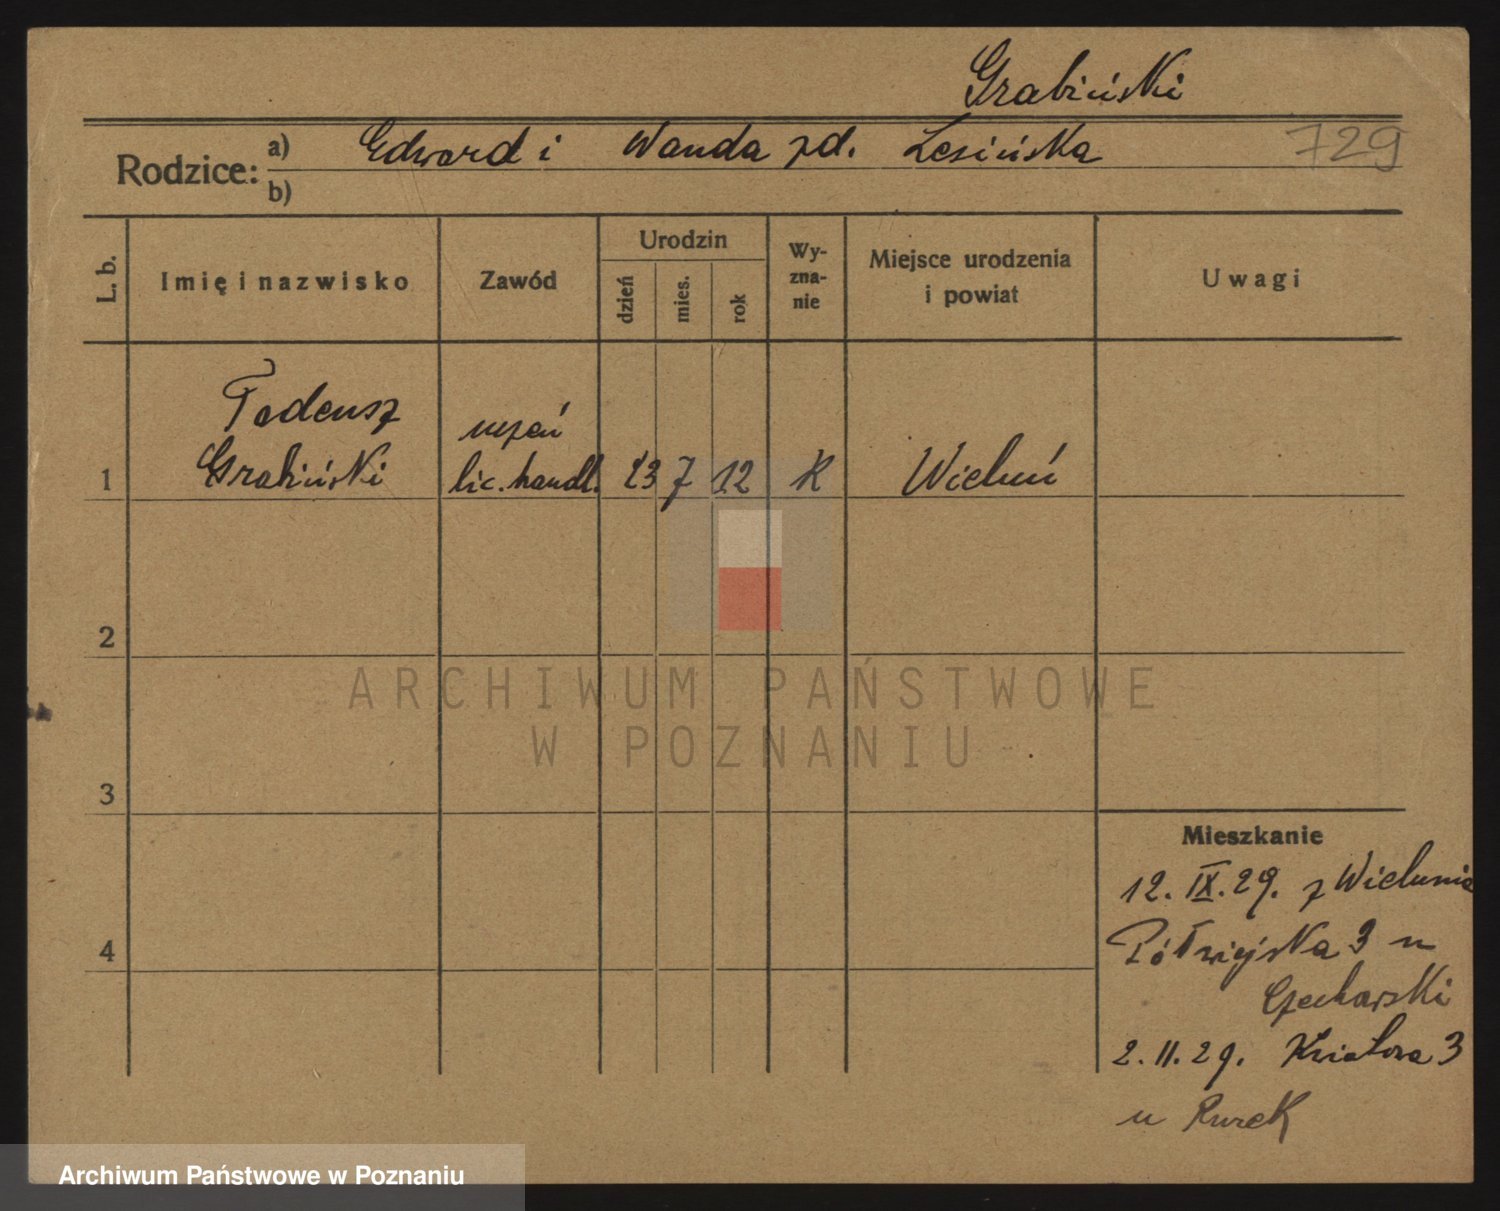 Grabiński
Rodzice: a) Edward i Wanda zd. Lesińska 729
b)
L. b. Imię i nazwisko Zawód Urodzin dzień mies. rok Wy-zna-nie Miejsce urodzenia i powiat Uwagi
Tadeusz uczeń
1 Grabiński lic. handl. 23 7 12 K Wieluń
2
ARCHIWUM PAŃSTWOWE
W POZNANIU
3
Mieszkanie
12. IX. 29. z Wielunia
4 Półwiejska 3 u
2. 11. 29. 3
u Rurek
Archiwum Państwowe w Poznaniu